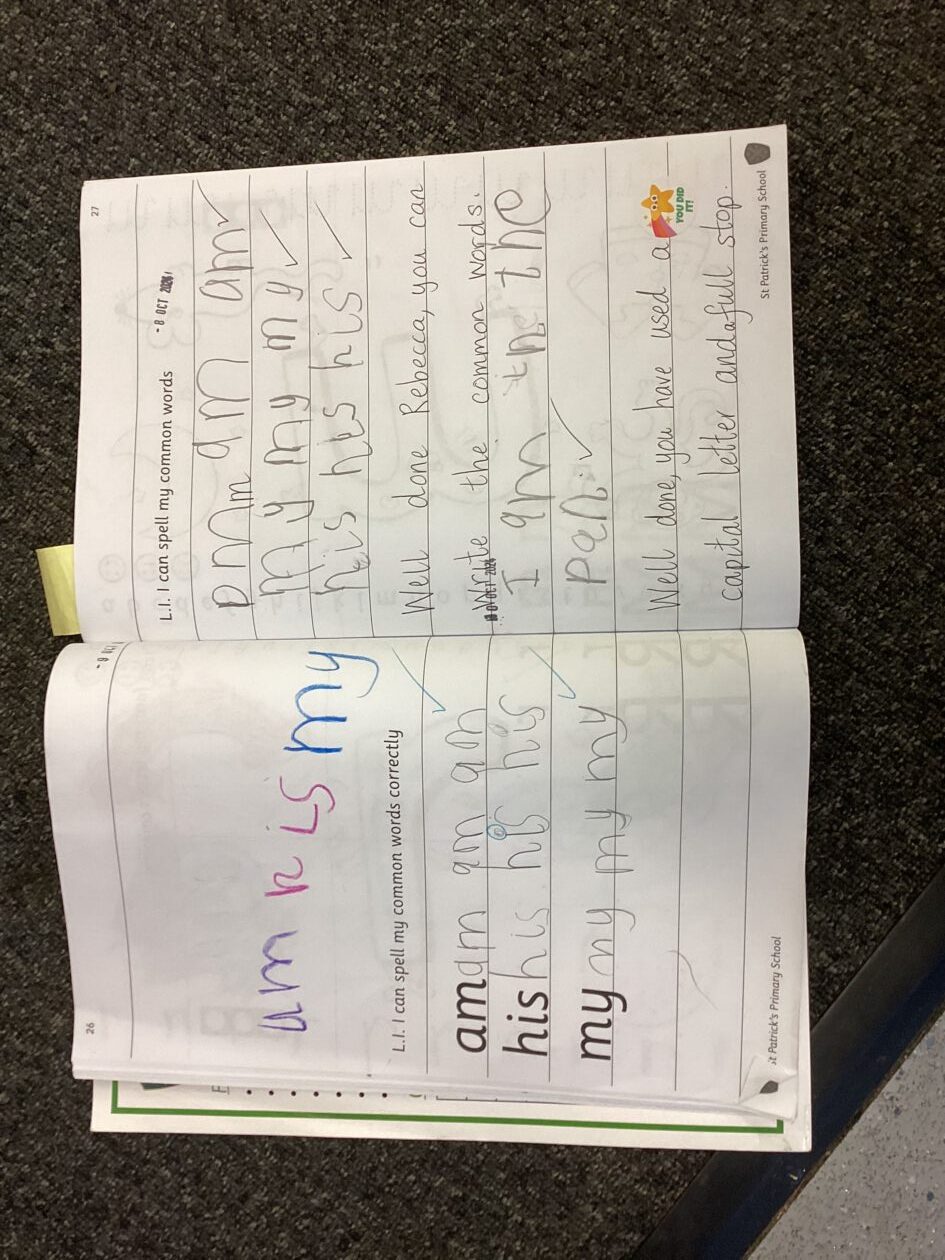 26
am his my
L.I. I can spell my common words correctly
am am am am
his his his his
my my my my
St Patrick's Primary School
27
- 8 OCT 2024
L.I. I can spell my common words
am am am
my my my my
his his his
Well done Rebecca, you can
write the common words.
I am the the
pen.
Well done, you have used a
YOU DID IT!
capital letter and a full stop.
St Patrick's Primary School